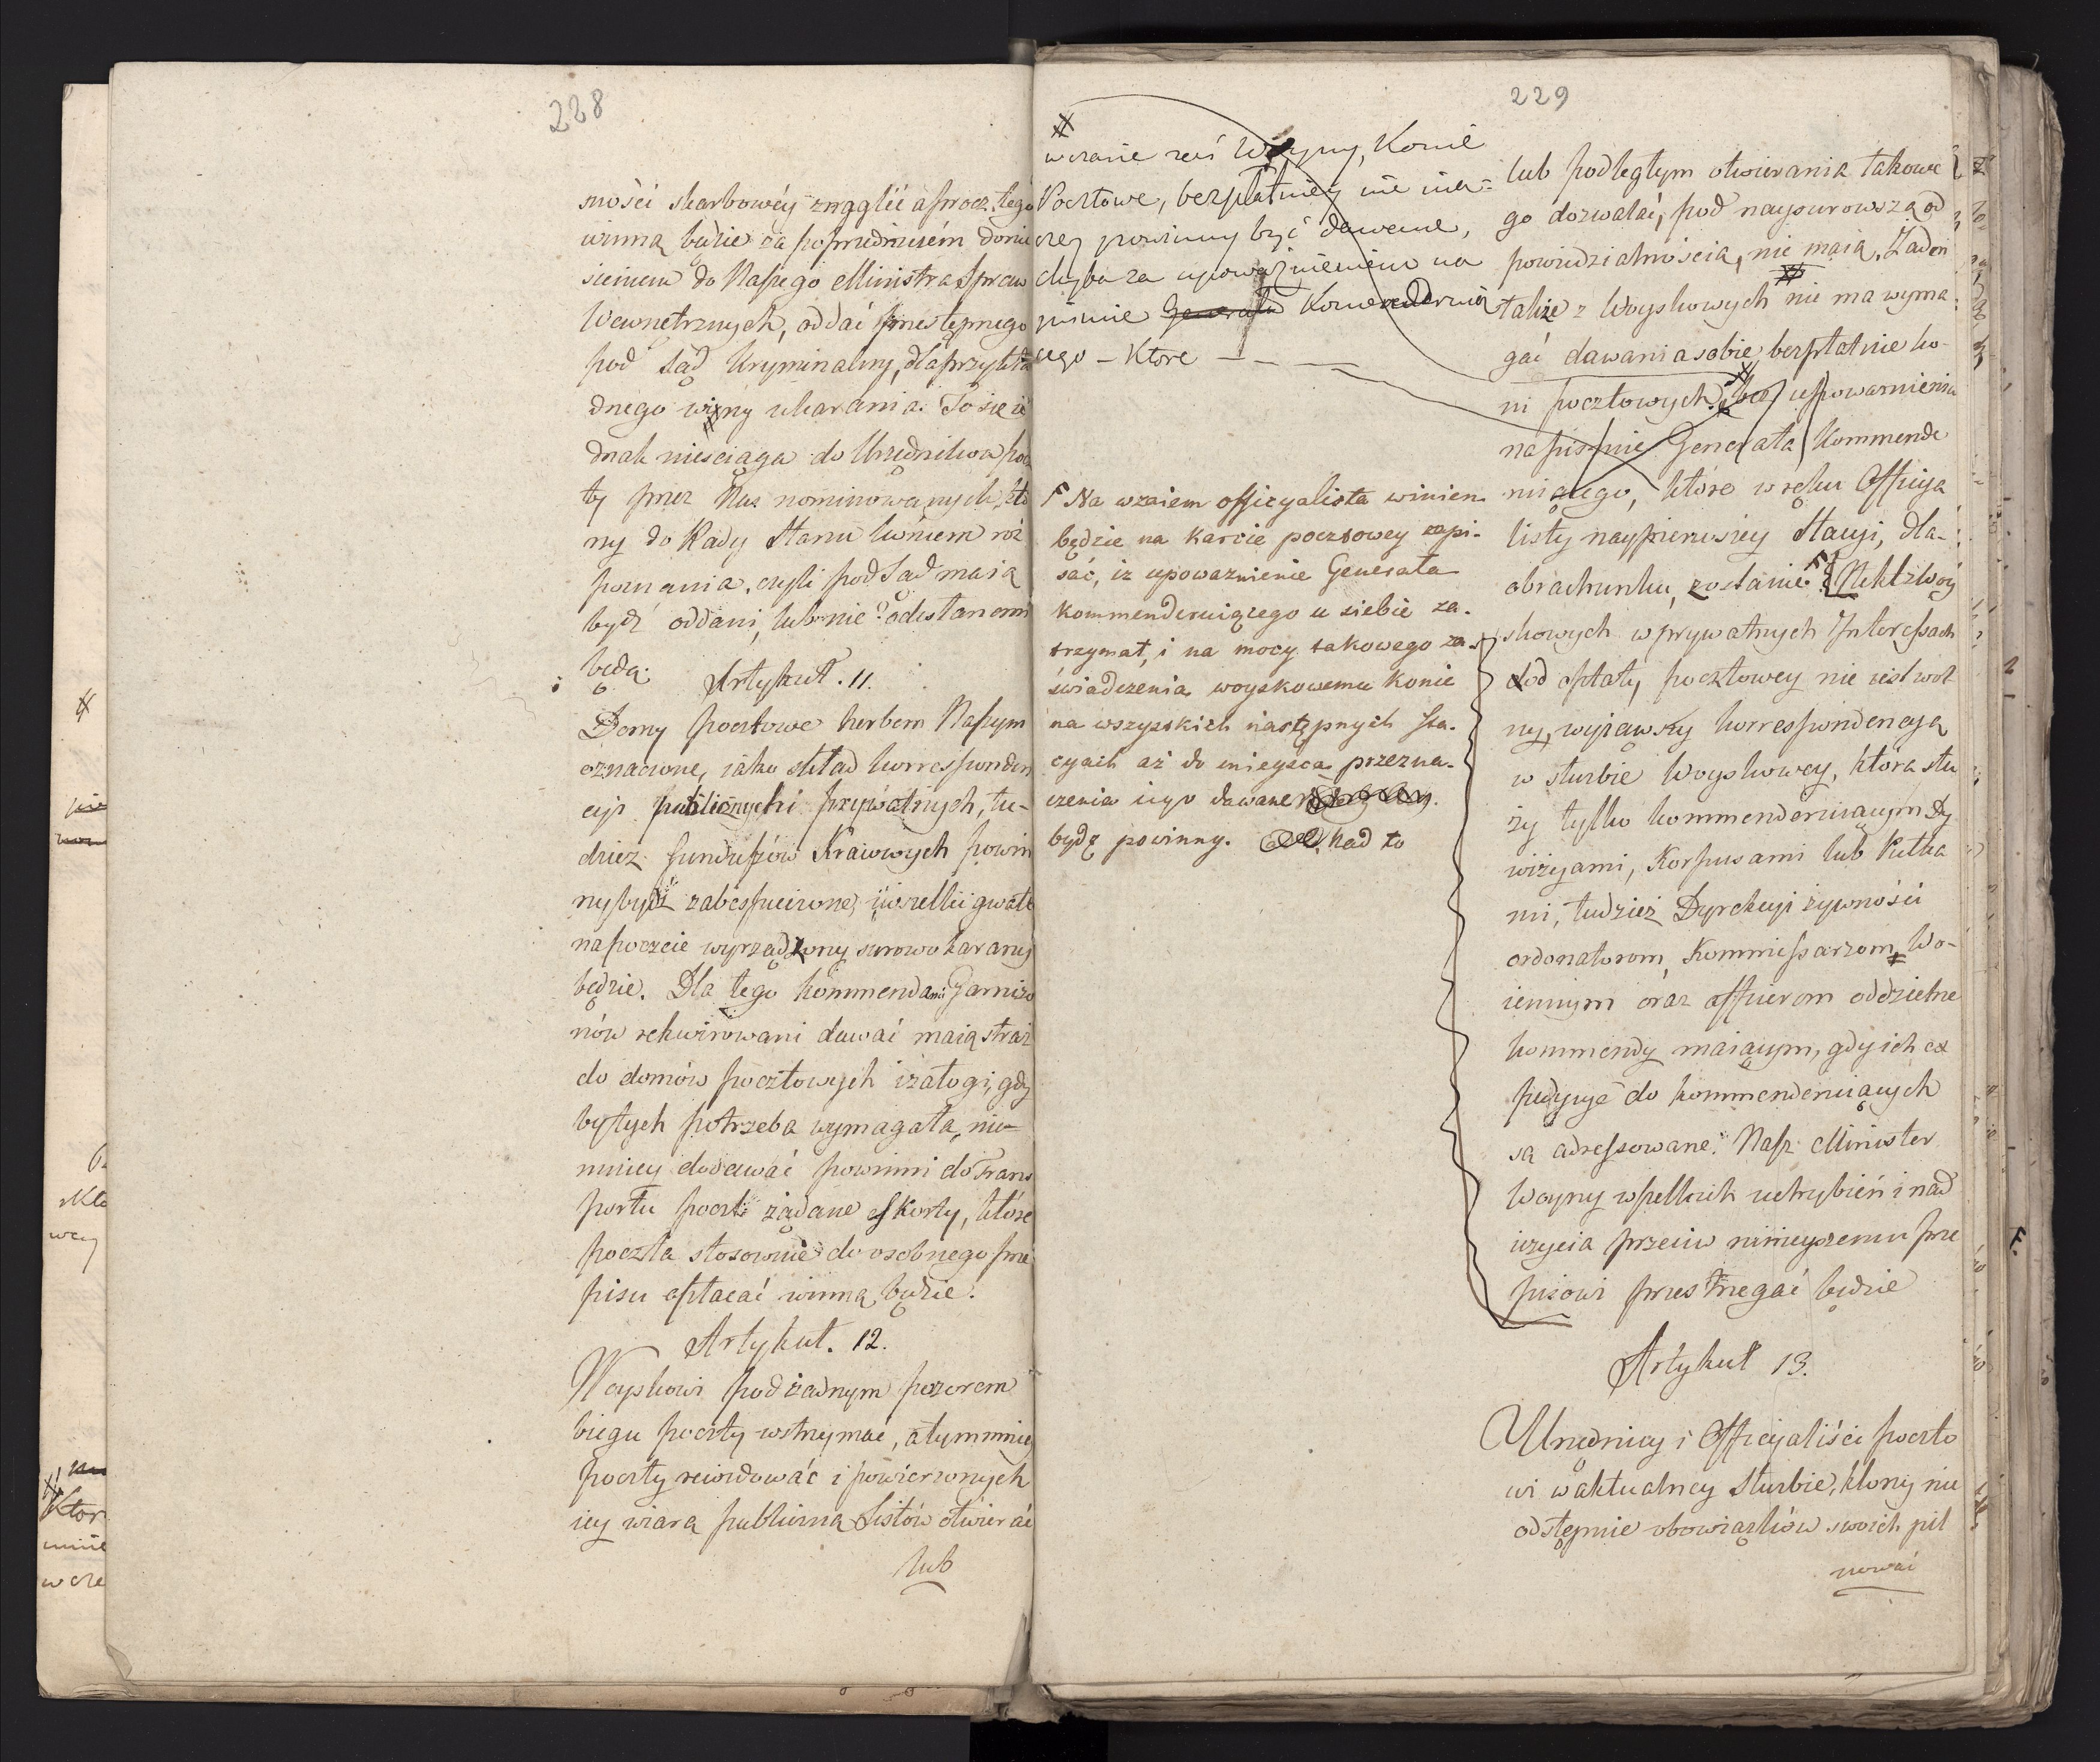 228
sności skarbowéy znaglić a procz tego
winną będzie za poprzedniczém donie
sieniem do Naszego Ministra Spraw
Wewnętrznych, oddać przestępnego
pod Sąd kryminalny, dla przykła
dnego winy ukarania. To się ie
dnak nie ściąga do Urzędników pocz
ty przez Nas nominowanych, któ
rzy do Rady Stanu wniem roz
poznania, czyli pod Sąd maią
bydź oddani, lub nie? odesłanemi
będą.
Artykuł. 11.
Domy pocztowe herbem Naszym
oznaczone, iako skład korresponden
cyi publicznych i prywatnych, tu-
dzież funduszów Kraiowych powin
ny bydź zabespieczone, i wszelki gwałt
na poczcie wyrządzony surowo karany
będzie. Dla tego kommendanci Garnizo
nów rekwirowani dawać maią straż
do domów pocztowych i załogi, gdy
by tych potrzeba wymagała, nie-
mniey dodawać powinni do Trans
portu poczt żądane eskorty, które
poczta stosownie do osobnego prze
pisu opłacać winną będzie.
Artykuł. 12.
Woyskowi pod żadnym pozorem
biegu poczty wstrzymać, a tym mniey
poczty rewidować i powierzonych
iey wiarą publiczną Listów otwierać
lub
229
w czasie zaś Woyny, Konie
Pocztowe, bezpłatniey nie ina=
czey powinny być dawane,
chyba za upoważnieniem na
piśmie Generała Komenderuią
cego – Które –
Na wzaiem officyalista winien
będzie na karcie pocztowey zapi-
sać, iż upoważnienie Generała
kommenderuiącego u siebie za-
trzymał, i na mocy takowego za-
świadczenia woyskowemu konie
na wszystkich następnych sta-
cyach aż do mieysca przezna-
czenia iego dawane
bydź powinny. kad to
lub podległym otwierania takowe
go dozwalać, pod naysurowszą od
powiedzialnością, nie maią. Żaden
także z Woyskowych nie ma wyma
gać dawania sobie bezpłatnie ko-
ni pocztowych, bez upoważnienia
na piśmie Generała Kommende
ruiącego, które w ręku Officya
listy naypierwszey Stacyi, dla
obrachunku, zostanie. Nikt z Woy
skowych w prywatnych Interessach
od opłaty pocztowey nie iest wol
ny, wyiąwszy korrespondencyą
w służbie Woyskowey, która słu
ży tylko kommenderuiącym Dy
wizyami, Korpusami lub Pułka
mi, tudzież Dyrekcyi żywności
ordonatorom, Kommissarzom Wo-
iennym oraz officerom oddzielne
kommendy maiącym, gdy ich ex
pedycye do kommenderuiących
są adressowane. Nasz Minister
Woyny wszelkich uchybień i nad
użycia przeciw ninieyszemu prze
pisowi przestrzegać będzie
Artykuł 13.
Urzędnicy i Officyaliści poczto
wi w aktualney służbie, którzy nie
odstępnie obowiązków swoich pil
nować